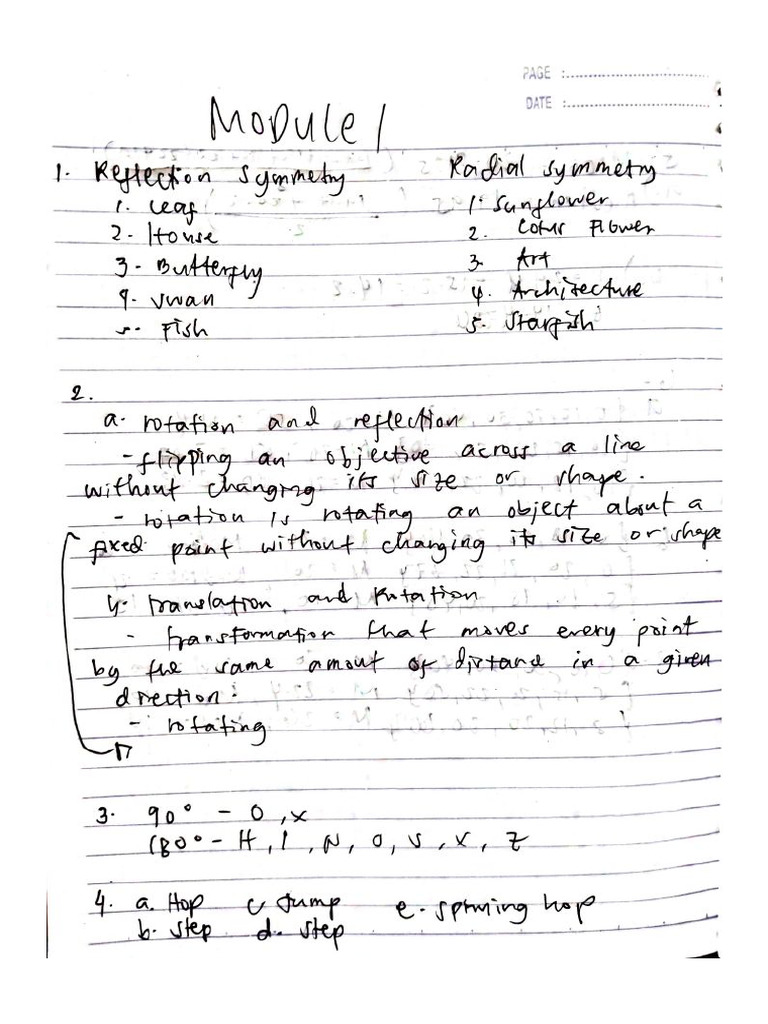 PAGE :
DATE :
MODULE 1
1. Reflection Symmetry Radial symmetry
1. Leaf 1. Sunflower
2. House 2. Lotus Flower
3. Butterfly 3. Art
4. Swan 4. Architecture
5. Fish 5. Starfish
2.
a. rotation and reflection
- flipping an objective across a line
without changing its size or shape.
- rotation is rotating an object about a
fixed point without changing its size or shape
b. translation and Rotation
- transformation that moves every point
by the same amout of distand in a given
direction.
- rotating
3. 90° - O, X
180° - H, I, N, O, S, X, Z
4. a. Hop c. Jump e. spinning hop
b. step d. step